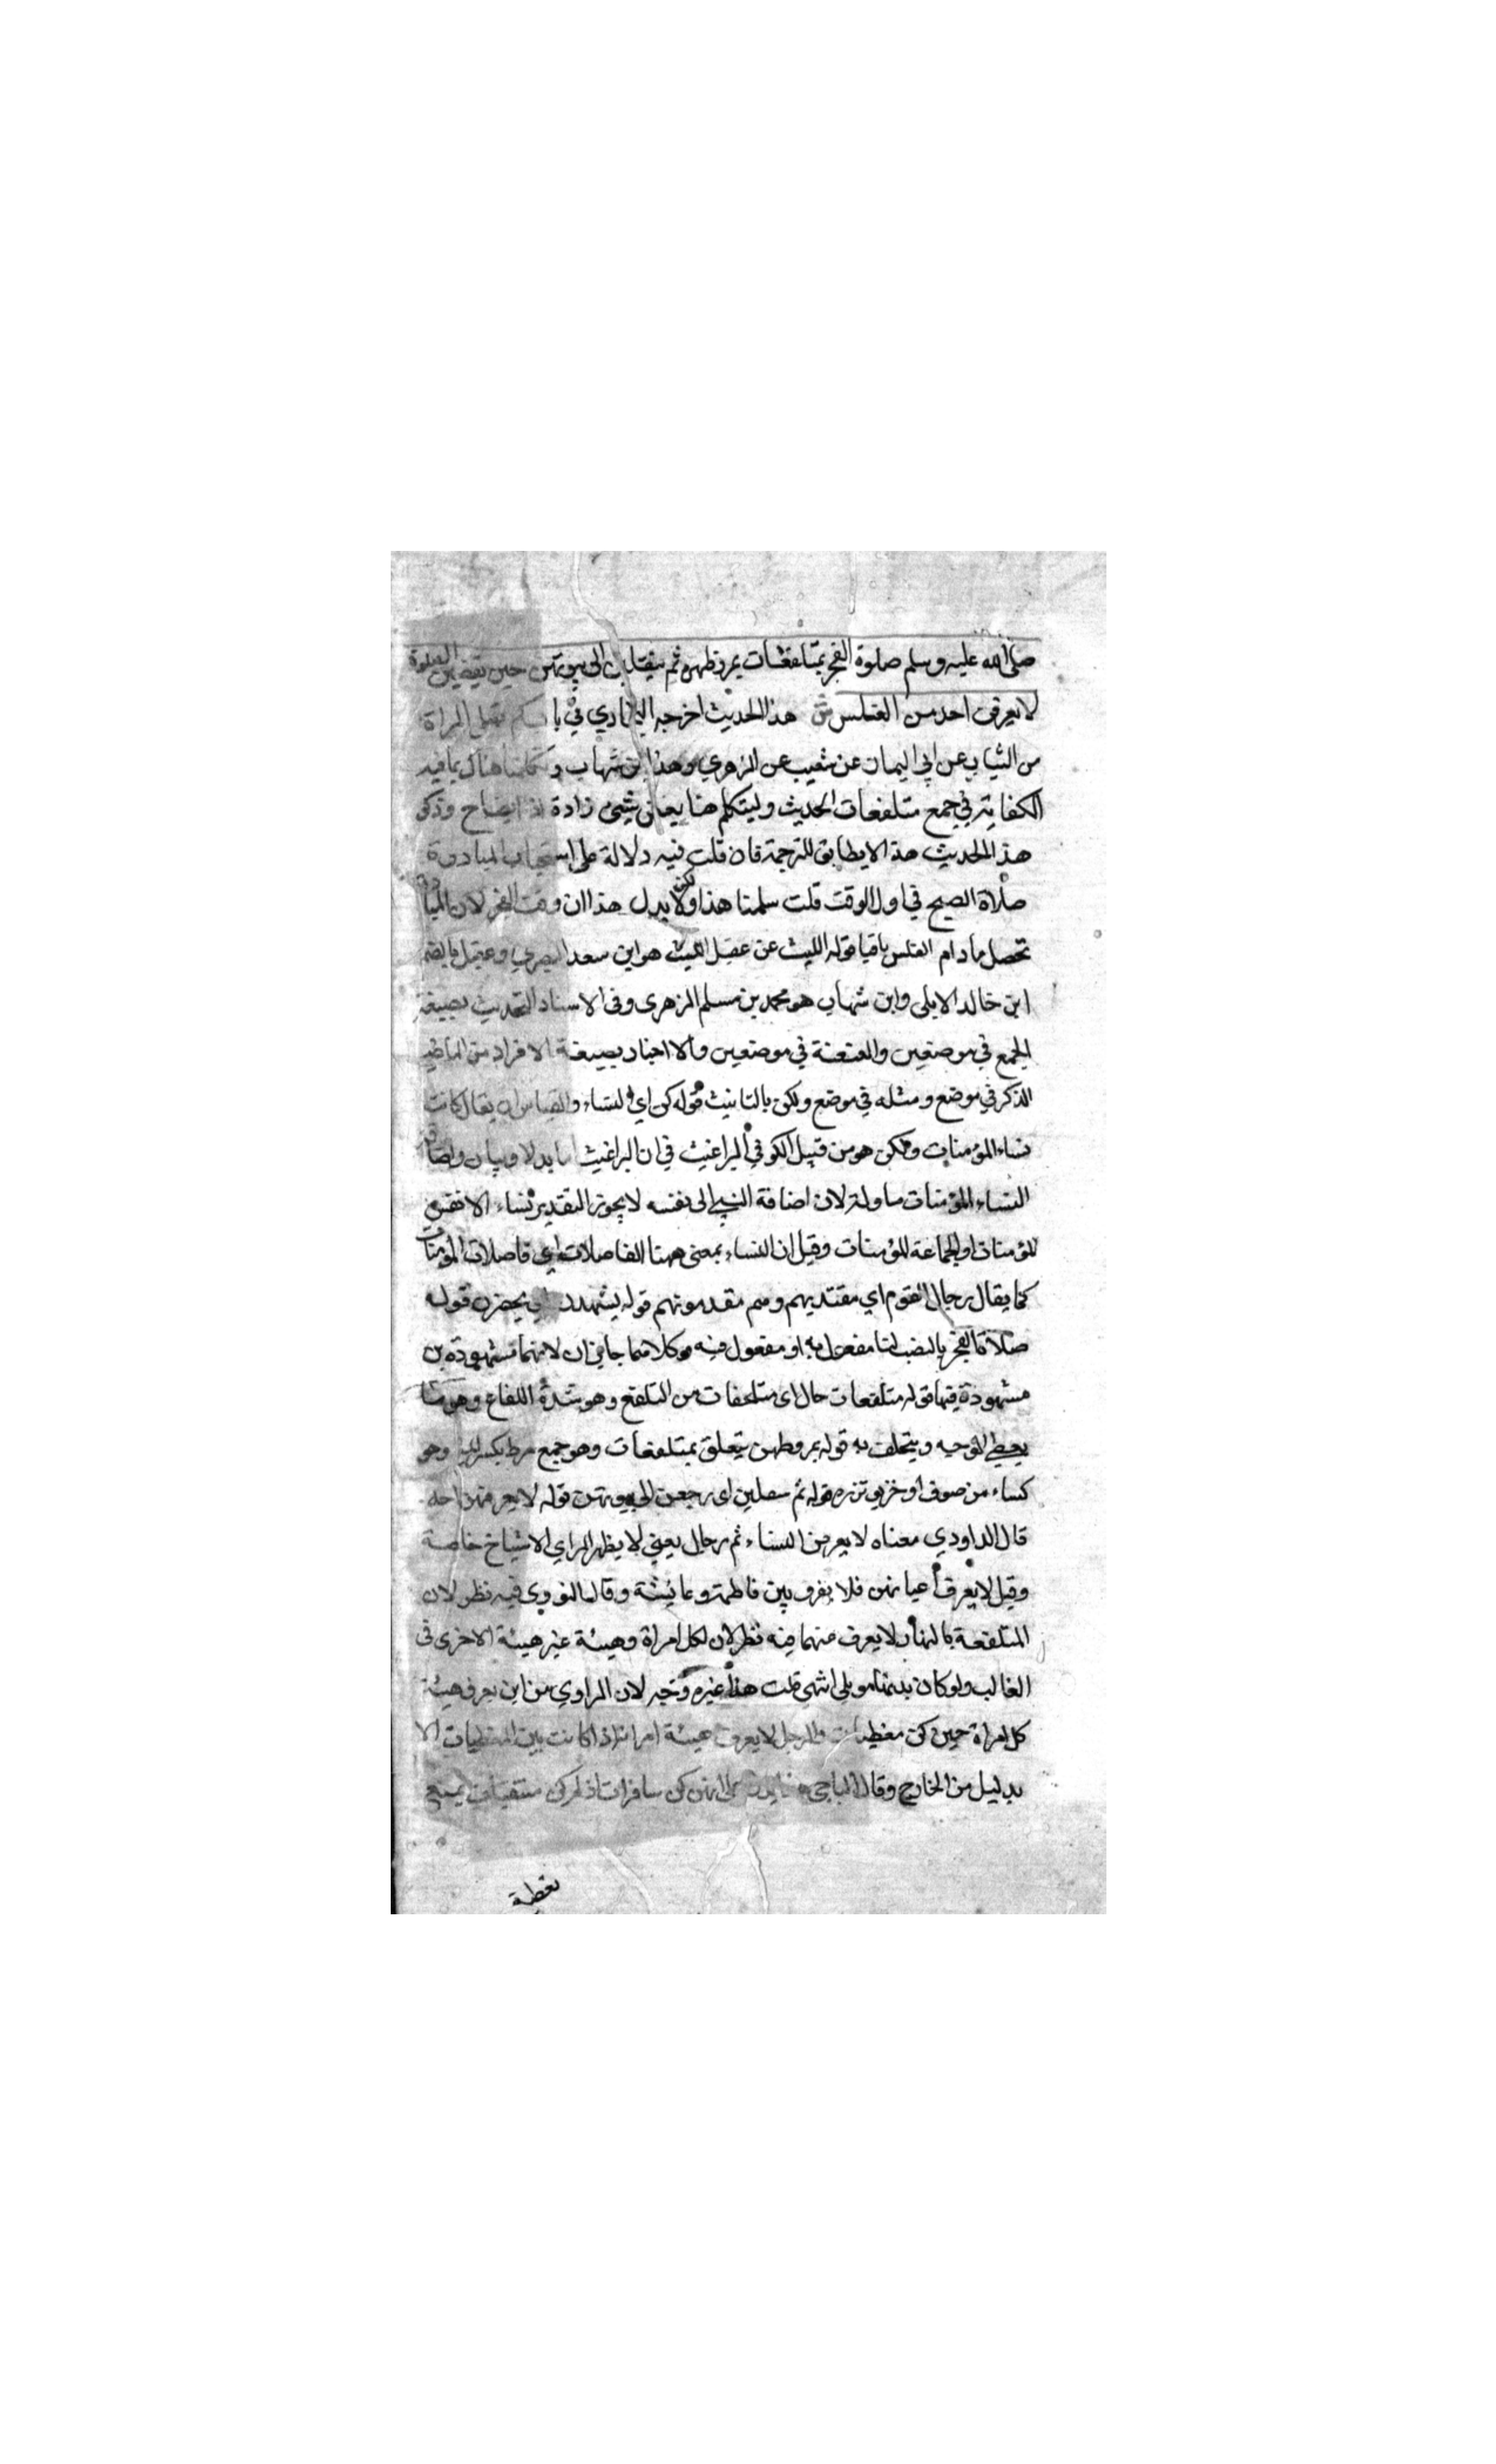 صلى الله عليه وسلم صلوة الفجر متلفعات بمروطهن ثم ينقلبن الى بيوتهن حين يقضين الصلوة
لا يعرفن احد من الغلس ش هذا الحديث اخرجه البخاري في باب كم تصلى المراة
من الثياب عن ابي اليمان عن شعيب عن الزهري وهذا ابن شهاب وتكلمنا هناك بما فيه
الكفاية في جمع متلفعات الحديث وليتكلم هنا يعاني شيئ زادة ايضاح وذكر
هذا الحديث هذا لا يطابق للترجمة فان قلت فيه دلالة على استحباب المبادرة
صلاة الصبح في اول الوقت قلت سلمنا هذا ولكن لا يدل هذا ان وقت الفجر لان المبادرة
تحصل ما دام الغلس باقيا قوله الليث عن عقيل الليث هو ابن سعد المصري وعقيل بالضم
ابن خالد الايلى وابن شهاب هو محمد بن مسلم الزهرى وفى الاسناد التحديث بصيغة
الجمع في موضعين والعنعنة في موضعين والاخبار بصيغة الافراد من الماضي
الذكر في موضع ومثله في موضع ولكن بالتانيث قوله كن اي النساء والقياس ان يقال كانت
نساء المؤمنات ولكن هو من قبيل اكلوني البراغيث في ان البراغيث اما بدلا وبيان واضافة
النساء المؤمنات ماولة لان اضافة الشيئ الى نفسه لا يجوز التقدير نساء الانفس
المؤمنات او الجماعة المؤمنات وقيل ان النساء بمعنى ههنا الفاضلات اي فاضلات المؤمنات
كما يقال رجال القوم اي مقتديهم وهم مقدمونهم قوله يشهدن اي يحضرن قوله
صلاة الفجر بالنصب اما مفعول به او مفعول فيه وكلاهما جايزان لانهما مشهودة بن
مشهودة فيها قوله متلفعات حال اى متلحفات من التلفع وهو شدة اللفاع وهو ما
يغطي الوجه ويتلحف به قوله بمروطهن يتعلق بمتلفعات وهو جمع مرط بكسر الميم وهو
كساء من صوف او خز يوتزر به قوله ثم ينقلبن اى يرجعن الى بيوتهن قوله لا يعرفهن احد
قال الداودي معناه لا يعرفن النساء ثم رجال يعني لا يظهر للراي الا اشباح خاصة
وقيل لا يعرف اعيانهن فلا يفرق بين فاطمة وعائشة وقال النووى فيه نظر لان
المتلفعة بالنهار لا يعرف عنهما فيه نظر لان لكل امراة وهيئة غير هيئة الاخرى فى
الغالب ولو كان بدنها مغطى انتهى قلت هذا غير وجه لان الراوي من اين يعرف هيئة
كل امراة حين كن مغطيات والرجل لا يعرف هيئة امراته اذا كانت بين المغطيات الا
بدليل من الخارج وقال الباجي هذا يدل على انهن كن سافرات اذ لو كن متنقبات يمنع
تغطية